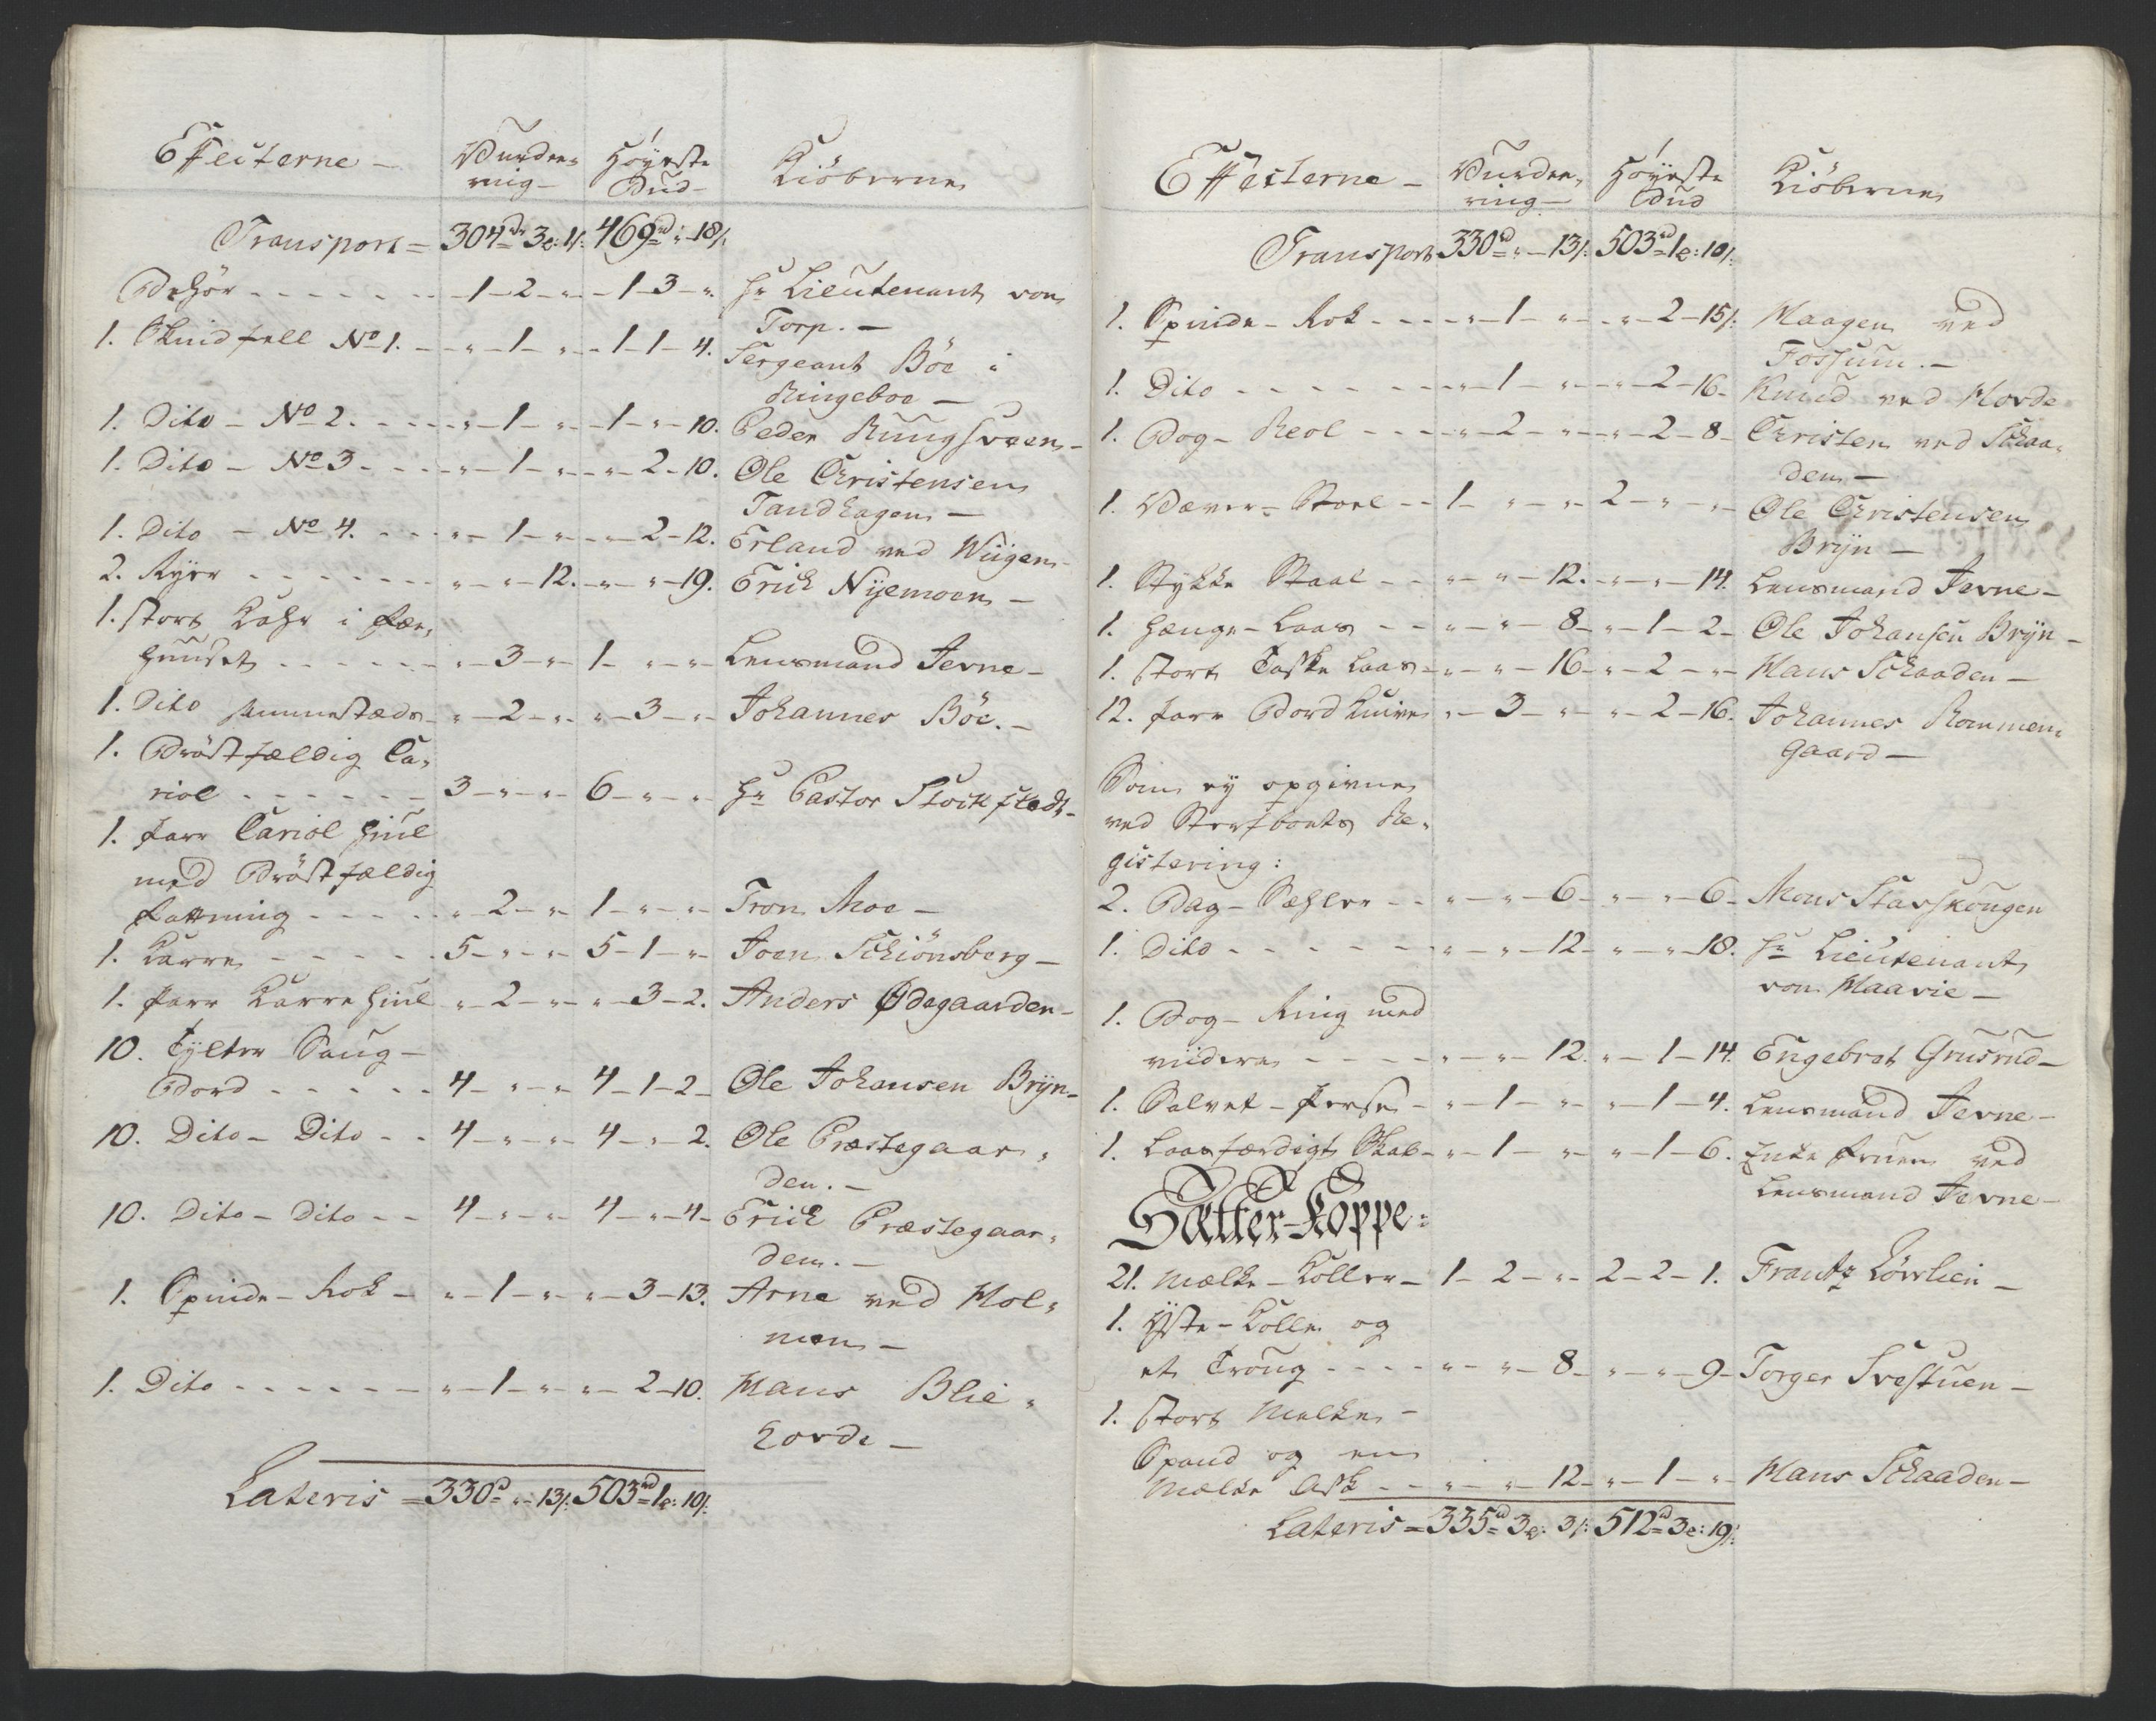 Effecterne – Vurde- Høyeste Kiöberne
ring – Bud –
Transport = 304rd 3 1/: 469rd " – 18/:
Behör - - - - - – 1 – 2 – " – 1 – 3 – ". Hr Lieutenant von
Torp. –
1. Skindfell No 1. – " – 1 – " – 1 – 1 – 4. Sergeant Böe i
Ringeboe –
1. Dito – No 2. - - " – 1 – " – 1 – " – 10. Peder Ruugsveen –
1. Dito – No 3 - - " – 1 – " – " – 2 – 10. Ole Christensen
Tandhagen –
1. Dito – No 4. - - " – 1 – " – " – 2 – 12. Erland ved Wügen –
2. Ryer - - - - - " – " – 12. – " – " – 19. Erich Nyemoen –
1. stort Kahr i Fæe-
huuset - - - - - " – 3 – " – 1 – " – " – Lensmand Jevne –
1. Dito sammestæds – " – 2 – " – " – 3 – " – Johannes Böe. –
1. Bröstfældig Ca-
riol - - - - - 3 – " – " – 6 – " – " – Hr Pastor Stockfledt –
1. Parr Cariol Hiul
med Bröstfældig
Fatning - - - - " – 2 – " – 1 – " – " – Tron Moe –
1. Karre - - - - - 5 – " – " – 5 – 1 – " – Joen Schiönsberg –
1. Parr Karrehiul " – 2 – " – " – 3 – 2. Anders Ødegaarden –
10. Tylter Saug –
Bord - - - - - 4 – " – " – 4 – 1 – 2 – Ole Johansen Bryn –
10. Dito – Dito - - 4 – " – " – 4 – " – 2. Ole Præstegaar-
den. –
10. Dito – Dito - - 4 – " – " – 4 – " – 4 – Erich Præstegaar-
den. –
1. Spinde – Rok – " – 1 – " – " – 3 – 13. Arne ved Hol-
men –
1. Dito - - - - - – " – 1 – " – " – 2 – 10. Hans Blie-
horde –
Lateris = 330rd " – 13/: 503rd 1: 10/:
Effecterne – Vurde- Høyeste Kiöberne
ring – Bud
Transport 330rd " – 13/: 503rd 1: 10/:
1. Spinde – Rok - - - " – 1 – " – " – 2 – 15/: Haagen ved
Fossum. –
1. Dito - - - - - – " – 1 – " – " – 2 – 16 – Knud ved Horde
1. Bog – Reol - - - " – 2 – " – " – 2 – 8 – Christen ved Schaa-
den –
1. Wæver – Stoel - - 1 – " – " – 2 – " – " – Ole Christensen
Bryn –
1. Stykke Staal - - " – " – 12. – " – " – 14. Lensmand Jevne –
1. Hænge – Laas - - " – " – 8 – " – 1 – 2 – Ole Johansen Bryn –
1. stort Taske Laas – " – " – 16 – " – 2 – " – Hans Schaaden –
12. Parr Bord Knive " – 3 – " – " – 2 – 16. Johannes Rommen-
gaard –
Som ey opgivne
ved Sterfboets Re-
gistering:
2. Bag – Sæhler - - " – " – 6 – " – " – 6 – Mons Starskougen
1. Dito - - - - - – " – " – 12 – " – " – 18. Hr Lieutenant
von Haavie –
1. Bog – Ring med
viidere - - - - " – " – 12. " – 1 – 14. Engebret Grusrud –
1. Salvet – Perse – " – 1 – " – " – 1 – 4. Lensmand Jevne –
1. Laasfærdigt Skab – " – 1 – " – " – 1 – 6. Enke Fruen ved
Lensmand Jevne –
Sætter-Koppe:
21. Mælke – Koller – 1 – 2 – " – 2 – 2 – 1. Frantz Lövlien –
1. Yste – Kolle og
et Troug - - - - " – " – 8 – " – " – 9 – Torger Svestuen –
1. stort Melke –
Spand og en
Mælke Ask - - " – " – 12 – " – 1 – " – Hans Schaaden –
Lateris = 335rd 3: 3/: 512rd 3: 19/: